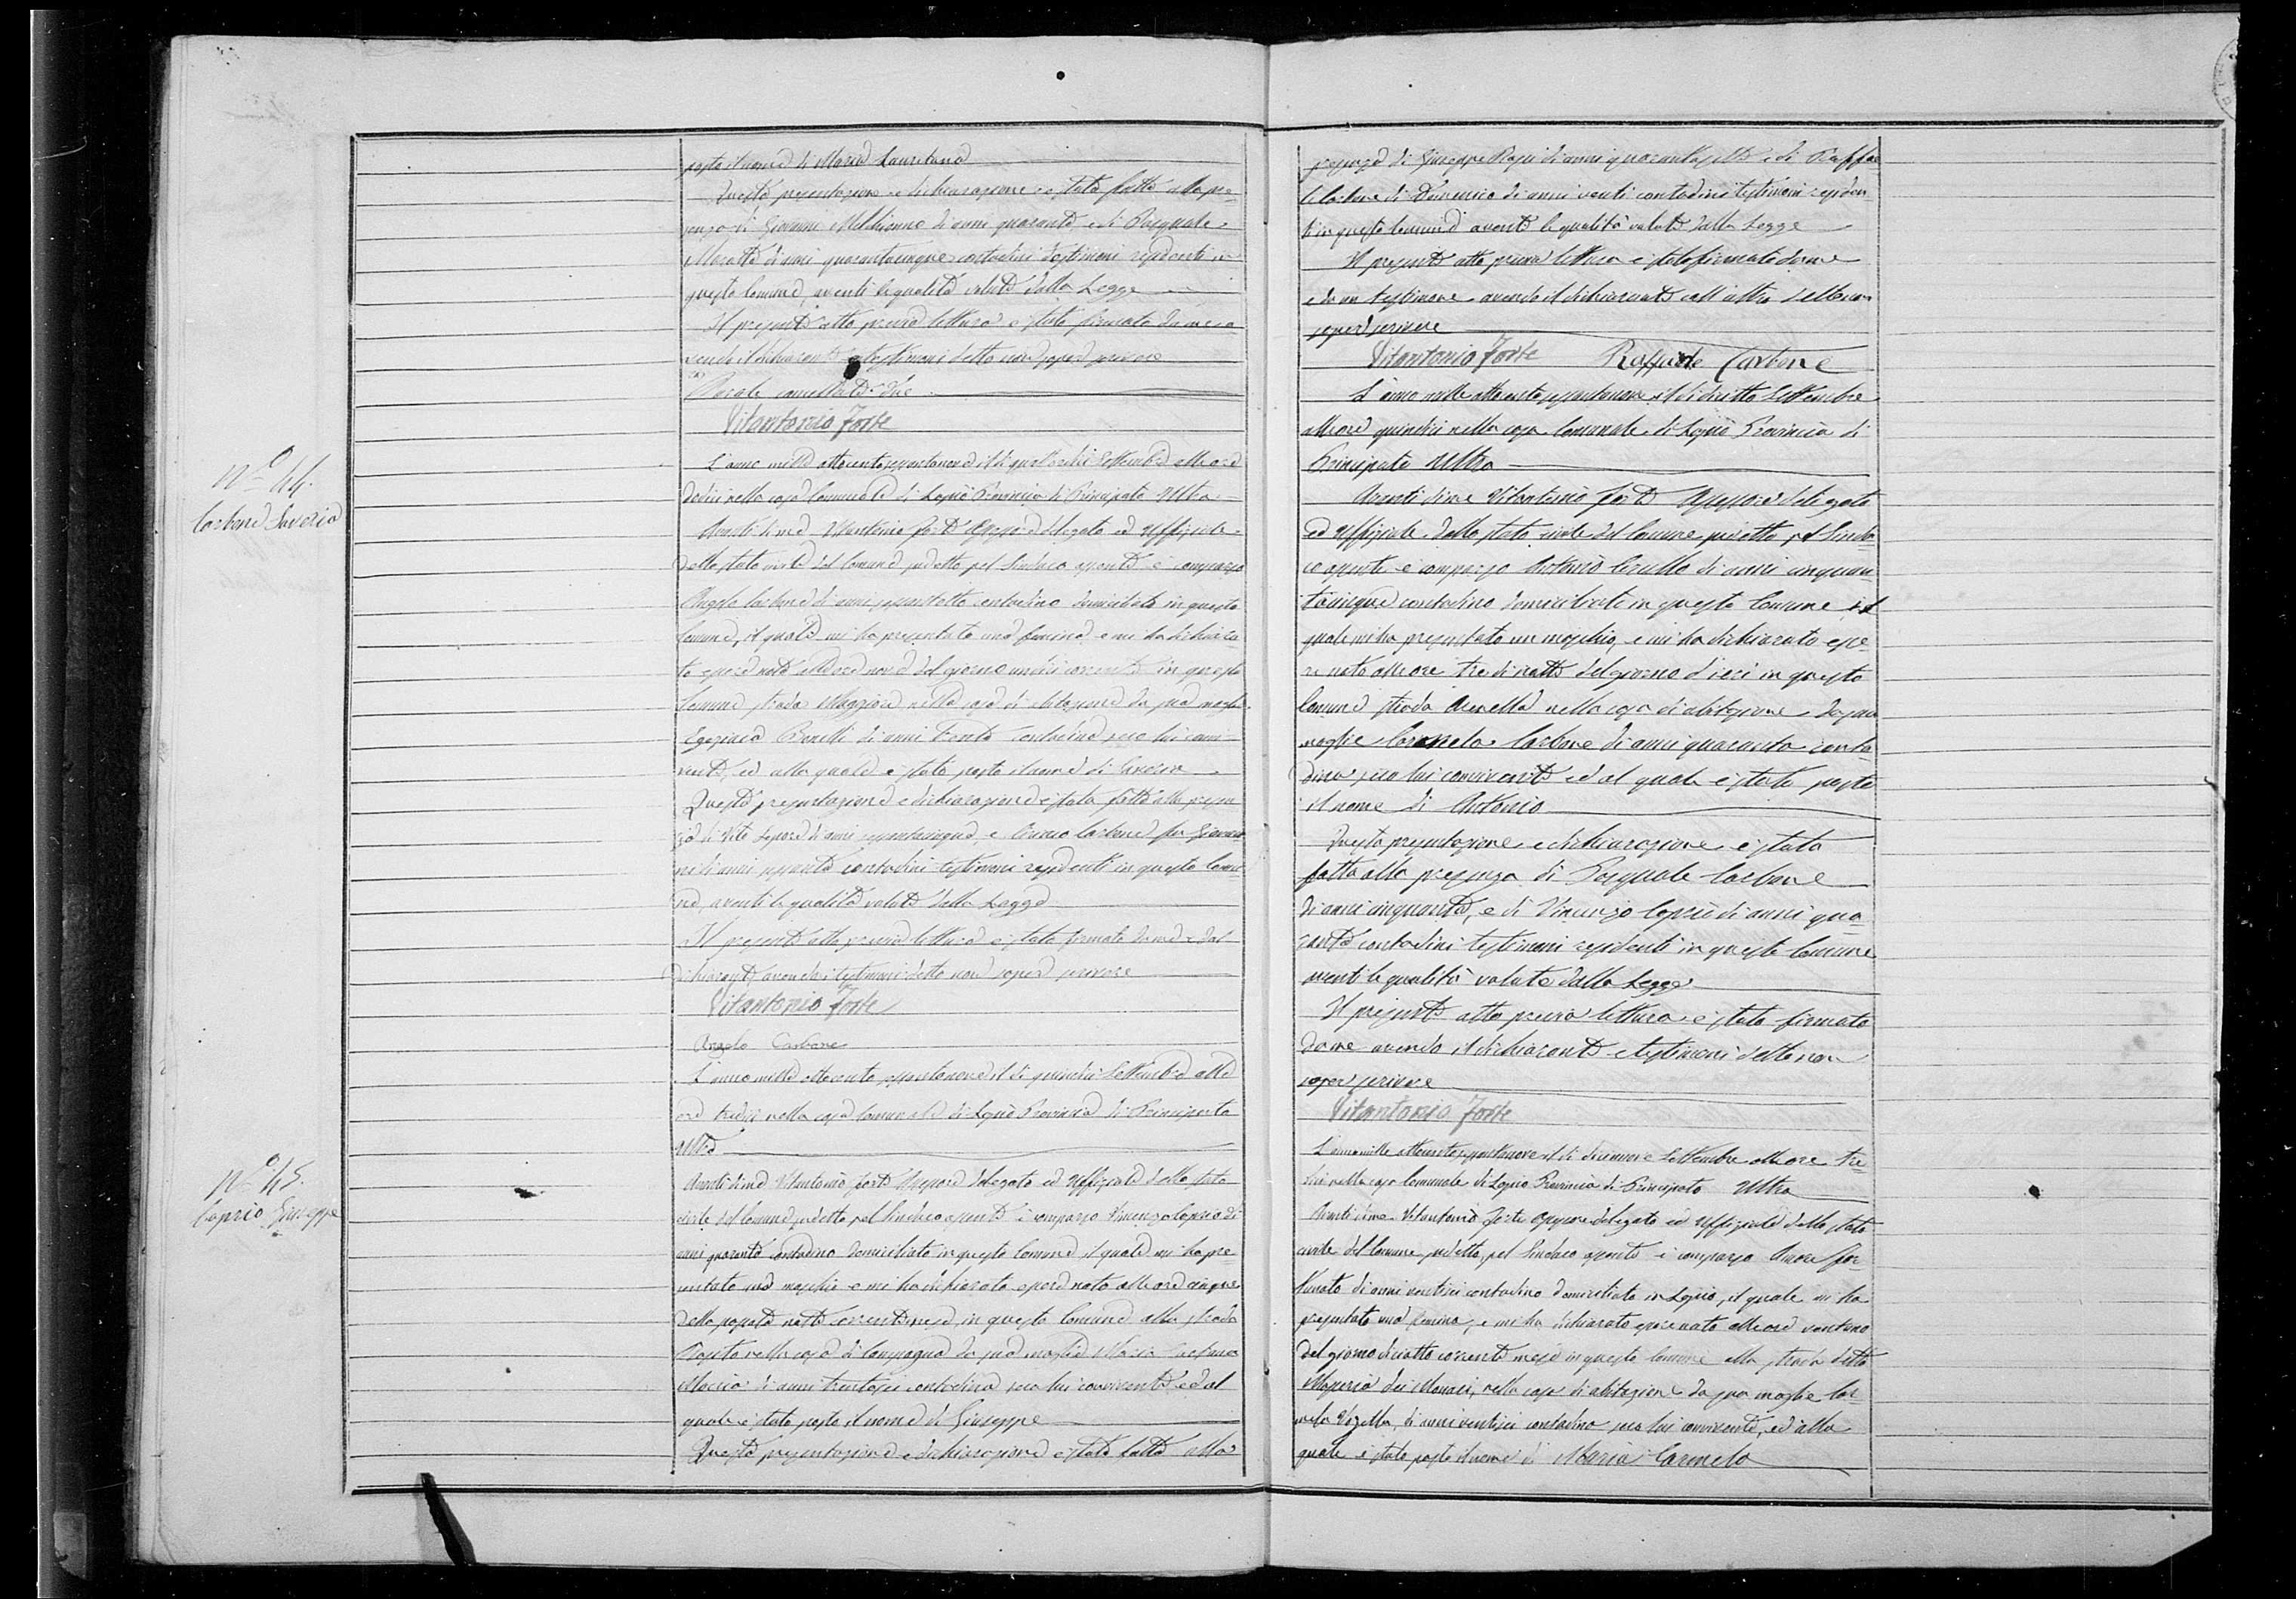 posto il nome di Maria Lauretana
Questa presentazione e dichiarazione è stata fatta alla pre-
senza di Giovanni Melchionno di anni quaranta, e di Pasquale
di anni quarantacinque contadini testimoni residenti in
questo Comune, aventi le qualità volute dalla Legge
Il presente atto previa lettura è stato firmato da me a-
vendo il dichiarante e testimoni detto non saper scrivere
Parole cancellate due
Vitantonio Forte
Nº 44.
Carbone Saveria
L'anno mille ottocento settantanove il dì quattordici Settembre alle ore
dodici nella casa Comunale di Lapio Provincia di Principato Ultra
Avanti di me Vitantonio Forte Assessore delegato ed Uffiziale
dello stato civile del Comune suddetto pel Sindaco assente è comparso
Angelo Carbone di anni contadino domiciliato in questo
Comune, il quale mi ha presentato una femina e mi ha dichiara-
to essere nata alle ore nove del giorno undici corrente in questo
Comune strada Maggiore nella casa di abitazione da sua moglie
di anni trenta contadina seco lui convi-
vente, ed alla quale è stato posto il nome di Saveria
Questa presentazione e dichiarazione è stata fatta alla presen-
za di Vito Lepore di anni sessantacinque, e Carbone fu Giovan-
ni di anni sessanta contadini testimoni residenti in questo Comu-
ne, aventi le qualità volute dalla Legge
Il presente atto previa lettura è stato firmato da me e dal
dichiarante, avendo i testimoni detto non saper scrivere
Vitantonio Forte
Angelo Carbone
Nº 45.
Caprio Giuseppe
L'anno mille ottocento settantanove il dì quindici Settembre alle
ore tredici nella casa Comunale di Lapio Provincia di Principato
Ultra
Avanti di me Vitantonio Forte Assessore delegato ed Uffiziale dello stato
civile del Comune suddetto pel Sindaco assente è comparso Vincenzo Caprio di
anni quaranta contadino domiciliato in questo Comune il quale mi ha pre-
sentato una maschio e mi ha dichiarato essere nato alle ore cinque
della passata notte corrente mese, in questo Comune alla strada
nella casa di Campagna da sua moglie Maria
di anni trentasei contadina seco lui convivente, ed al
quale è stato posto il nome di Giuseppe
Questa presentazione e dichiarazione è stata fatta alla
presenza di Giuseppe di anni quarantasette e di Raffae-
le Carbone di Domenico di anni venti contadini testimoni residen-
ti in questo Comune aventi le qualità volute dalla Legge
Il presente atto previa lettura è stato firmato da me
e da un testimone avendo il dichiarante coll'altro detto non
saper scrivere
Vitantonio Forte Raffaele Carbone
L'anno mille ottocento settantanove il dì diciotto Settembre
alle ore quindici nella casa Comunale di Lapio Provincia di
Principato Ultra
Avanti di me Vitantonio Forte Assessore delegato
ed Uffiziale dello stato civile del Comune suddetto pel Sinda-
co assente è comparso Antonio Cirullo di anni cinquan-
tacinque contadino domiciliato in questo Comune il
quale mi ha presentato un maschio, e mi ha dichiarato esse-
re nato alle ore tre di notte del giorno d'ieri in questo
Comune strada Arenella nella casa di abitazione da sua
moglie Carmela Carbone di anni quaranta conta-
dina seco lui convivente ed al quale è stato posto
il nome di Antonio
Questa presentazione e dichiarazione è stata
fatta alla presenza di Pasquale Carbone
di anni cinquanta, e di Vincenzo Caprio di anni qua-
ranta contadini testimoni residenti in questo Comune
aventi le qualità volute dalla Legge
Il presente atto previa lettura è stato firmato
da me avendo il dichiarante e testimoni detto non
saper scrivere
Vitantonio Forte
L'anno mille ottocento settantanove il dì diciannove Settembre alle ore tre-
dici nella casa Comunale di Lapio Provincia di Principato Ultra
Avanti di me Vitantonio Forte Assessore delegato ed Uffiziale dello stato
civile del Comune suddetto, pel Sindaco assente è comparso For-
tunato di anni contadino domiciliato in Lapio, il quale mi ha
presentato una femina, e mi ha dichiarato essere nata alle ore ventuno
del giorno diciotto corrente mese in questo Comune alla strada detta
dei Monaci, nella casa di abitazione da sua moglie Car-
mela di anni ventisei contadina seco lui convivente, ed alla
quale è stato posto il nome di Maria Carmela